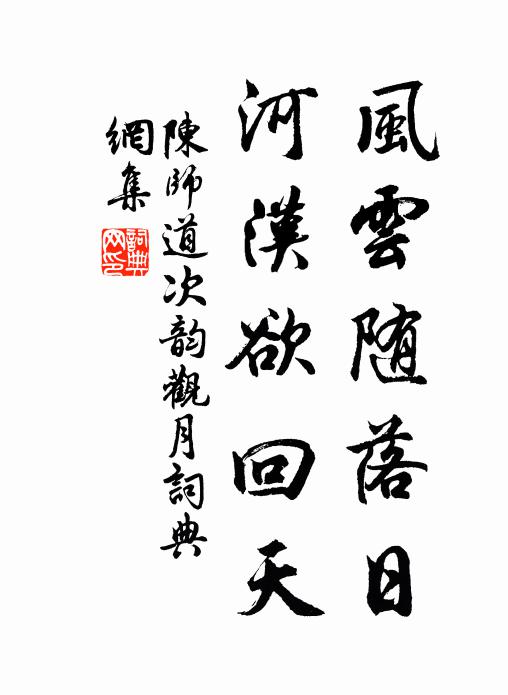 風雲随落日
河漢欲回天
陳師道次韵觀月詞典
網集
詞典
网印